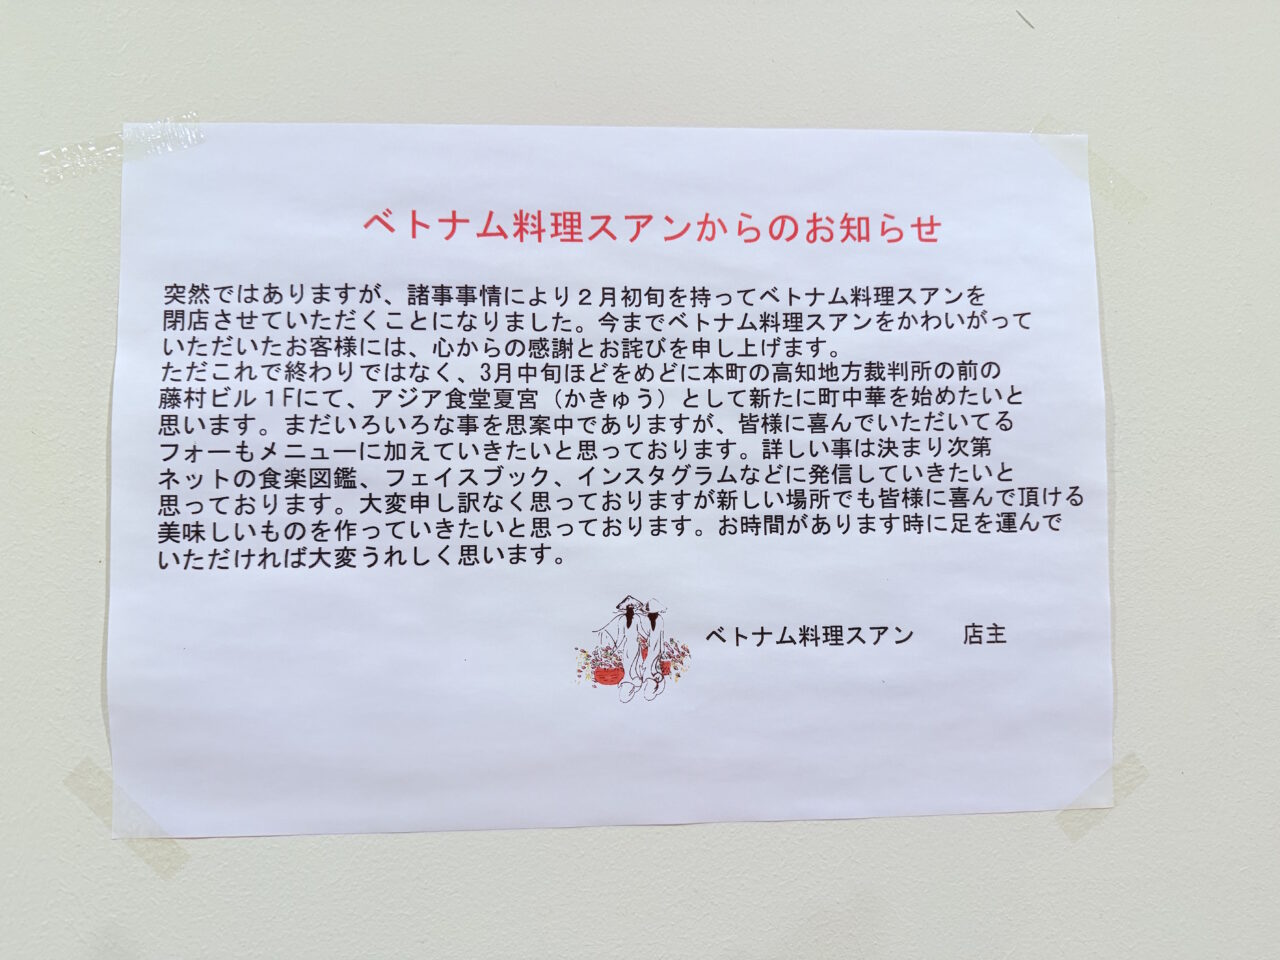 ベトナム料理スアンからのお知らせ
突然ではありますが、諸事事情により２月初旬を持ってベトナム料理スアンを
閉店させていただくことになりました。今までベトナム料理スアンをかわいがって
いただいたお客様には、心からの感謝とお詫びを申し上げます。
ただこれで終わりではなく、3月中旬ほどをめどに本町の高知地方裁判所の前の
藤村ビル１Fにて、アジア食堂夏宮（かきゅう）として新たに町中華を始めたいと
思います。まだいろいろな事を思案中でありますが、皆様に喜んでいただいてる
フォーもメニューに加えていきたいと思っております。詳しい事は決まり次第
ネットの食楽図鑑、フェイスブック、インスタグラムなどに発信していきたいと
思っております。大変申し訳なく思っておりますが新しい場所でも皆様に喜んで頂ける
美味しいものを作っていきたいと思っております。お時間があります時に足を運んで
いただければ大変うれしく思います。
ベトナム料理スアン　　店主